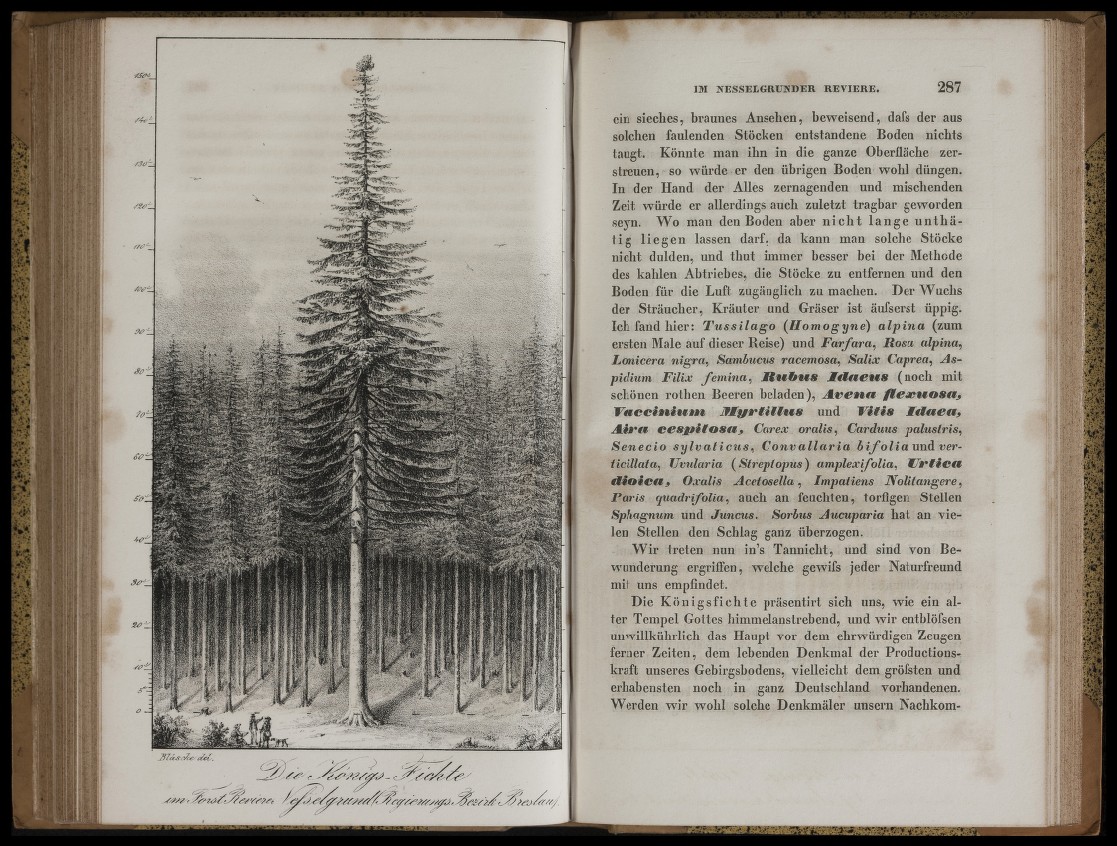 150
140
130
120
110
100
90
80
70
60
50
40
30
20
10
5
0
Bläsche del.
Die Königs-Fichte
im Forst-Reviere Nesselgrund (Regierungs-Bezirk Breslau).
IM NESSELGRUNDER REVIERE. 287
ein sieches, braunes Ansehen, beweisend, daſs der aus
solchen faulenden Stöcken entstandene Boden nichts
taugt. Könnte man ihn in die ganze Oberfläche zer-
streuen, so würde er den übrigen Boden wohl düngen.
In der Hand der Alles zernagenden und mischenden
Zeit würde er allerdings auch zuletzt tragbar geworden
seyn. Wo man den Boden aber nicht lange unthä-
tig liegen lassen darf, da kann man solche Stöcke
nicht dulden, und thut immer besser bei der Methode
des kahlen Abtriebes, die Stöcke zu entfernen und den
Boden für die Luft zugänglich zu machen. Der Wuchs
der Sträucher, Kräuter und Gräser ist äuſserst üppig.
Ich fand hier: Tussilago (Homogyne) alpina (zum
ersten Male auf dieser Reise) und Farfara, Rosa alpina,
Lonicera nigra, Sambucus racemosa, Salix Caprea, As-
pidium Filix femina, Rubus Idaeus (noch mit
schönen rothen Beeren beladen), Avena flexuosa,
Vaccinium Myrtillus und Vitis Idaea,
Aira cespitosa, Carex oralis, Carduus palustris,
Senecio sylvaticus, Convallaria bifolia und ver-
ticillata, Uvularia (Streptopus) amplexifolia, Urtica
dioica, Oxalis Acetosella, Impatiens Nolitangere,
Paris quadrifolia, auch an feuchten, torfigen Stellen
Sphagnum und Juncus. Sorbus Aucuparia hat an vie-
len Stellen den Schlag ganz überzogen.
Wir treten nun in's Tannicht, und sind von Be-
wunderung ergriffen, welche gewiſs jeder Naturfreund
mit uns empfindet.
Die Königsfichte präsentirt sich uns, wie ein al-
ter Tempel Gottes himmelanstrebend, und wir entblöſsen
unwillkührlich das Haupt vor dem ehrwürdigen Zeugen
ferner Zeiten, dem lebenden Denkmal der Productions-
kraft unseres Gebirgsbodens, vielleicht dem gröſsten und
erhabensten noch in ganz Deutschland vorhandenen.
Werden wir wohl solche Denkmäler unsern Nachkom-